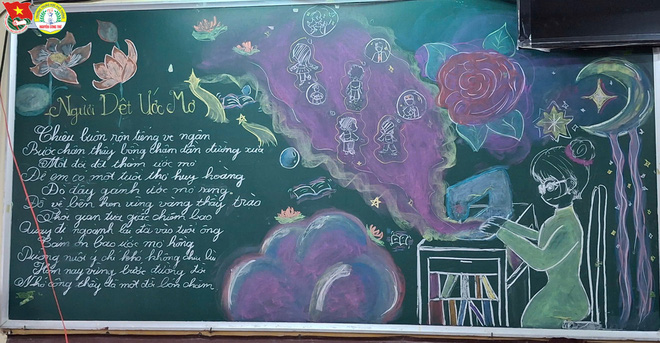 Người Dệt Ước Mơ
Chiều buồn rộn tiếng ve ngân
Bước chân thầy bỗng chậm dần đường xưa
Một đời dệt thảm ước mơ
Để em có một tuổi thơ huy hoàng
Đò đầy gánh ước mơ sang
Đò về bến hẹn vững vàng thầy trao
Thời gian tựa giấc chiêm bao
Quay đi ngoảnh lại đã vào tuổi ông
Cảm ơn bao ước mơ hồng
Dưỡng nuôi ý chí khó không chịu lùi
Hôm nay vững bước đường đời
Nhớ công thầy cả một đời lớn chăm